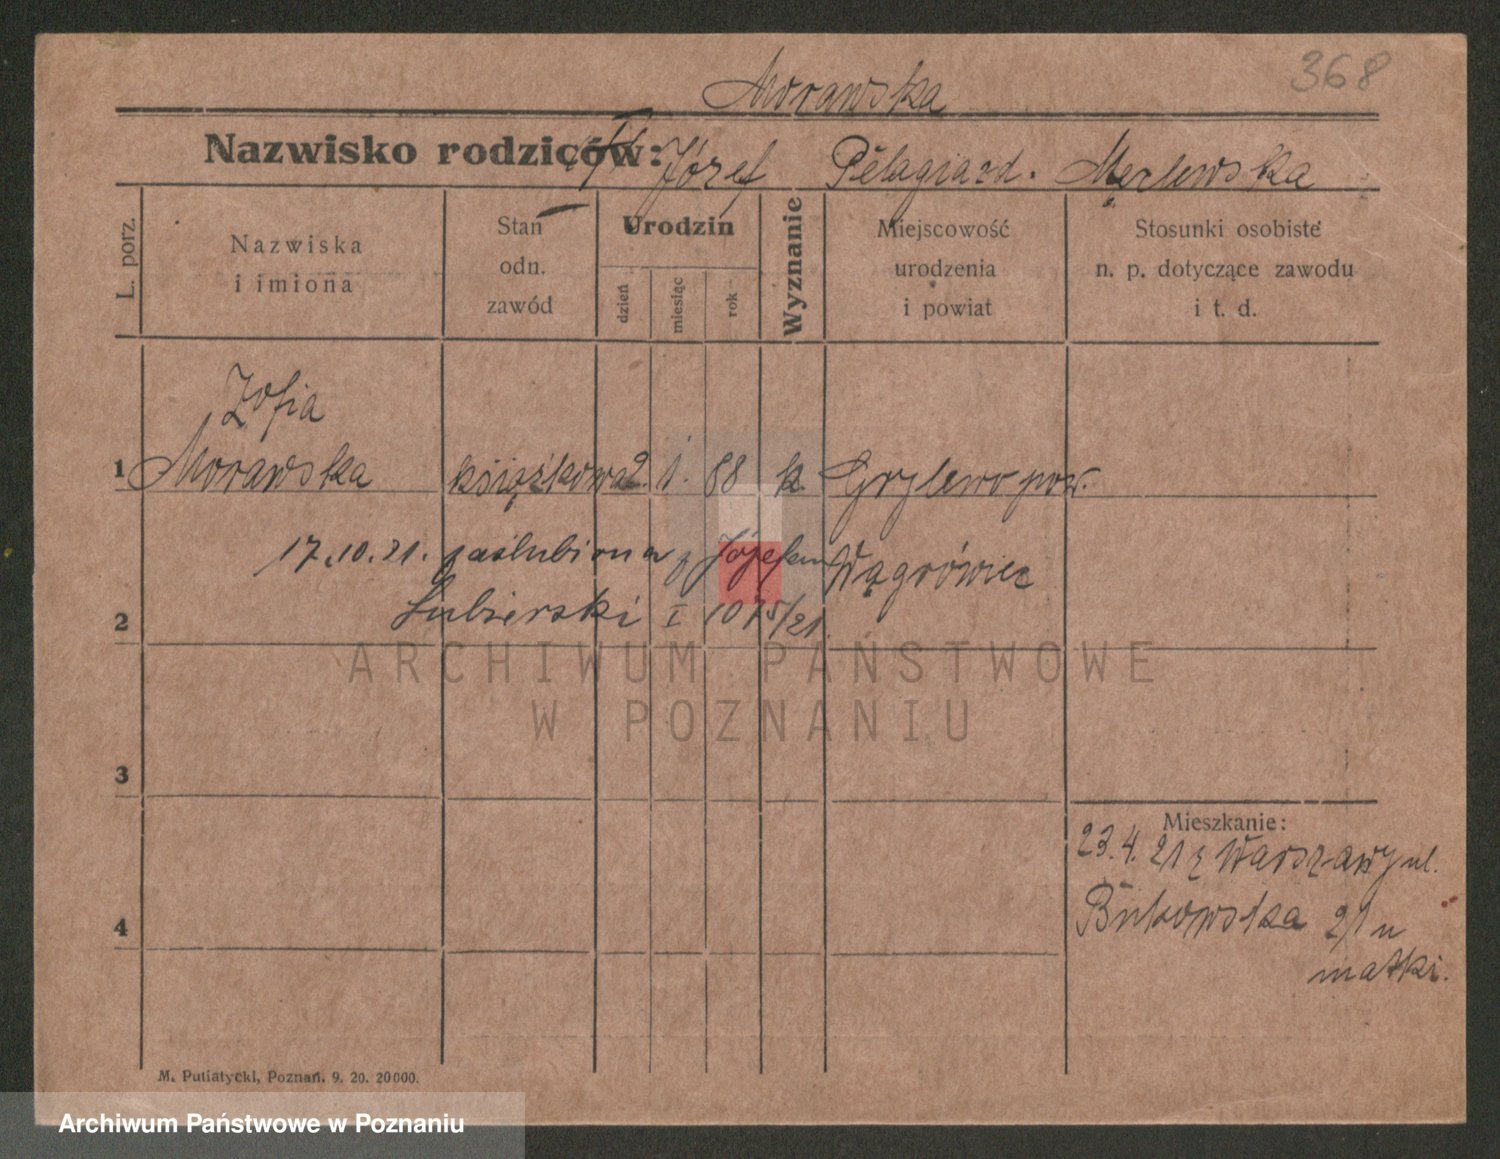 368
Morawska
Nazwisko rodziców: Józef Pelagia zd. Męzlewska
L. porz.
Nazwiska
i imiona
Stan
odn.
zawód
Urodzin
dzień
miesiąc
rok
Wyznanie
Miejscowość
urodzenia
i powiat
Stosunki osobiste
n. p. dotyczące zawodu
i t. d.
Zofia
1 Morawska książkowa 2. 1. 88 k. Grylewo pow.
17.10.21. zaślubiona z Józefem Wągrówiec
2 Lubierski I 1075/21.
ARCHIWUM PAŃSTWOWE
W POZNANIU
3
Mieszkanie:
23.4.21 z Warszawy ul.
4 Bukowska 21 u
matki.
M. Putiatycki, Poznań. 9. 20. 20000.
Archiwum Państwowe w Poznaniu